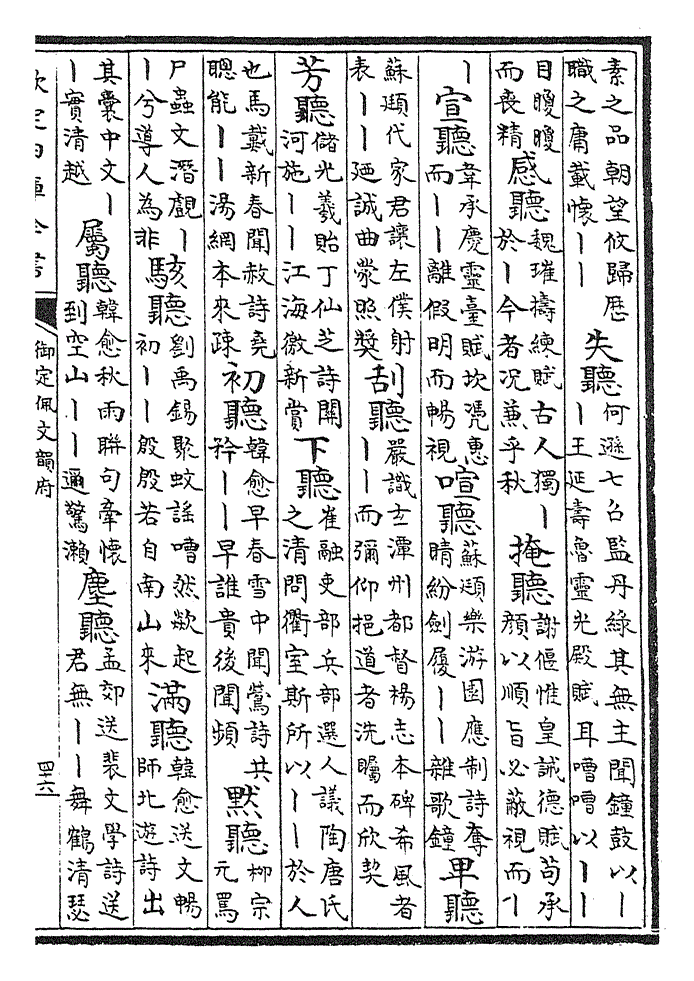 素之品朝望攸歸厯
職之庸載懷丨丨
失聽
何遜七召監丹綠其無主聞鐘鼓以丨
丨王延壽魯靈光殿賦耳嘈嘈以丨丨
目矎矎
而喪精
感聽
魏璀擣練賦古人獨丨
於丨今者況兼乎秋
掩聽
謝偃惟皇誠德賦苟承
顔以順旨必蔽視而丨
丨
宣聽
韋承慶靈臺賦坎凴惠
而丨丨離假明而暢視
喧聽
蘇頲樂游園應制詩奪
睛紛劍履丨丨雜歌鐘
卑聽
蘇頲代家君讓左僕射
表丨丨廼誠曲䝉照奬
刮聽
嚴識𤣥潭州都督楊志本碑希風者
丨丨而彌仰挹道者洗矚而欣契
芳聽
儲光羲貽丁仙芝詩關
河施丨丨江海徵新賞
下聽
崔融吏部兵部選人議陶唐氏
之清問衢室斯所以丨丨於人
也馬戴新春聞赦詩堯
聰能丨丨湯網本來疎
初聽
韓愈早春雪中聞鶯詩共
矜丨丨早誰貴後聞頻
黙聽
柳宗
元罵
尸蟲文潛覷丨
丨兮導人為非
駭聽
劉禹錫聚蚊謡嘈然歘起
初丨丨殷殷若自南山來
滿聽
韓愈送文暢
師北遊詩出
其囊中文丨
丨實清越
屬聽
韓愈秋雨聯句牽懷
到空山丨丨邇驚瀨
塵聽
孟郊送裴文學詩送
君無丨丨舞鶴清瑟
欽定四庫全書
御定佩文韻府
四十六